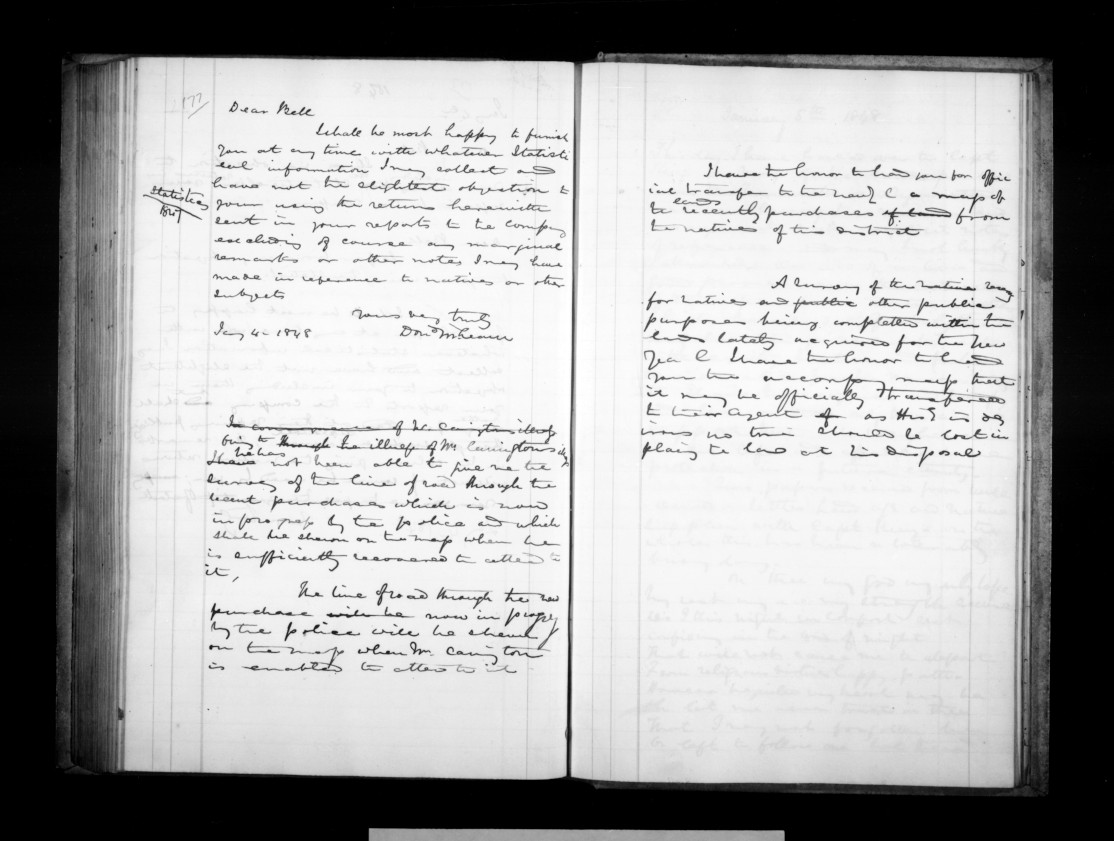 177
Dear Bell
I shall be most happy to furnish
you at any time with whatever Statisti
cal information I may collect and
have not the slightest objection to
Statistics
your using the returns herewith
sent in your reports to the Company
excluding of course any marginal
remarks or other notes I may have
made in reference to natives or other
subjects
Yours very truly
Jany 4 1848
Dond McLean
In consequence of Mr Carringtons illness
Owing to through the illness of Mr Carringtons
he has
I have not been able to give me the
survey of the line of road through the
recent purchases which is now
in progress by the police and which
shall be shewn on the map when he
is sufficiently recovered to attend to
it,
The line of road through the new
purchase will be now in progress
by the police will be shewn
on the map when Mr Carrington
is enabled to attend to it
I have the honor to hand you for offic
ial transfer to the New Z C a map of
lands
the recently purchases of land from
the natives of this district
A survey of the native
for natives and public other public
purposes being completed within the
lands lately acquired for the New
Zea C I have the honor to hand
you the accompy map that
it may be officially transferred
to their agent of as His is des
irous no time should be lost in
placing the land at his disposal